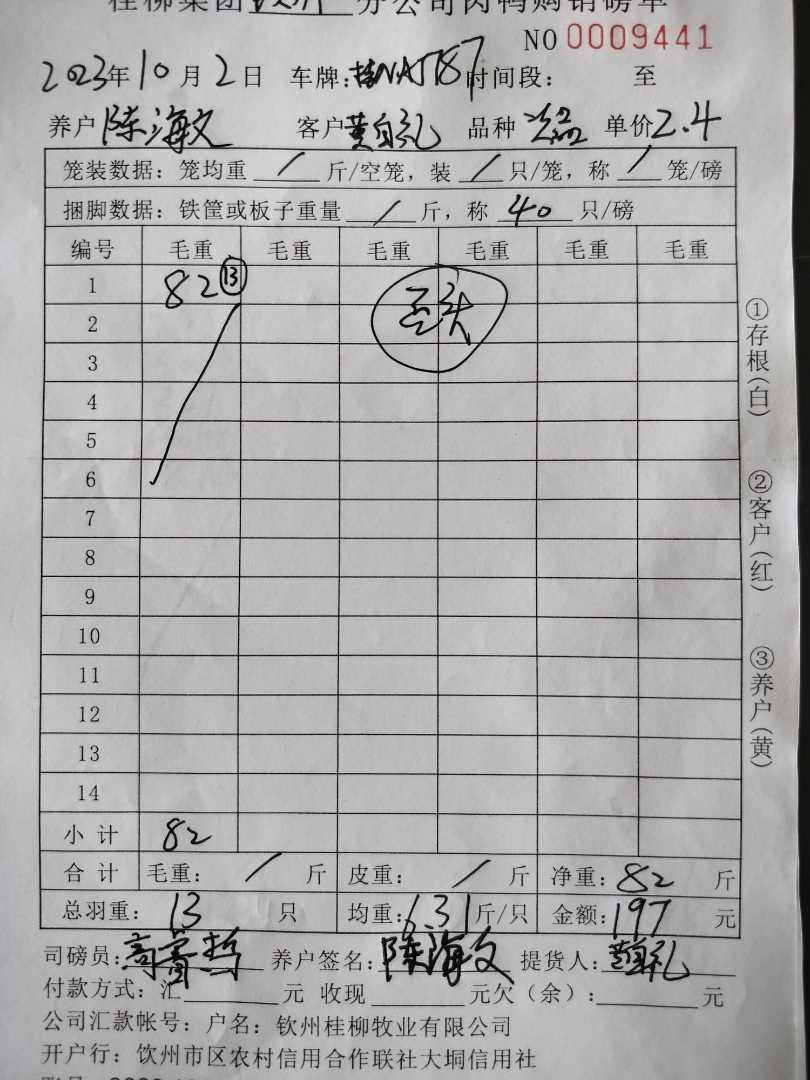 桂柳集团 分公司肉鸭购销磅单
NO 0009441
2023年10月2日 车牌:桂NAJ787 时间段: 至
养户 陈海文 客户 黄自礼 品种 单价 2.4
笼装数据: 笼均重 / 斤/空笼, 装 / 只/笼, 称 / 笼/磅
捆脚数据: 铁筐或板子重量 / 斤, 称 40 只/磅
编号 毛重 毛重 毛重 毛重 毛重 毛重
1 82 ⑬
2
3
4
5
6
7
8
9
10
11
12
13
14
小计 82
合计 毛重: / 斤 皮重: / 斤 净重: 82 斤
总羽重: 13 只 均重: 6.31 斤/只 金额: 197 元
司磅员: 养户签名: 陈海文 提货人: 黄自礼
付款方式: 汇 元 收现 元欠(余): 元
公司汇款帐号: 户名: 钦州桂柳牧业有限公司
开户行: 钦州市区农村信用合作联社大垌信用社
①存根(白)
②客户(红)
③养户(黄)